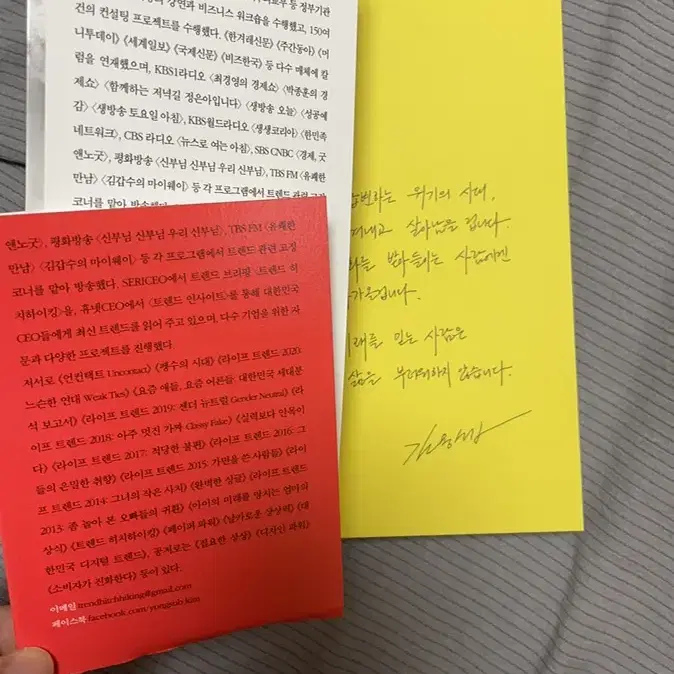 의 강연과 비즈니스 워크숍을 수행했고, 150여
건의 컨설팅 프로젝트를 수행했다. 《한겨레신문》 《주간동아》 《머
니투데이》 《세계일보》 《국제신문》 《비즈한국》 등 다수 매체에 칼
럼을 연재했으며, KBS1라디오 〈최경영의 경제쇼〉 〈박종훈의 경
제쇼〉 〈함께하는 저녁길 정은아입니다〉 〈생방송 오늘〉 〈성공예
감〉 〈생방송 토요일 아침〉, KBS월드라디오 〈생생코리아〉 〈한민족
네트워크〉, CBS 라디오 〈뉴스로 여는 아침〉, SBS CNBC 〈경제, 굿
앤노굿〉, 평화방송 〈신부님 신부님 우리 신부님〉, TBS FM 〈유쾌한
만남〉 〈김갑수의 마이웨이〉 등 각 프로그램에서 트렌드 관련 고정
코너를 맡아 방송했다
앤노굿〉, 평화방송 〈신부님 신부님 우리 신부님〉, TBS FM 〈유쾌한
만남〉 〈김갑수의 마이웨이〉 등 각 프로그램에서 트렌드 관련 고정
코너를 맡아 방송했다. SERICEO에서 트렌드 브리핑 〈트렌드 히
치하이킹〉을, 휴넷CEO에서 〈트렌드 인사이트〉를 통해 대한민국
CEO들에게 최신 트렌드를 읽어 주고 있으며, 다수 기업을 위한 자
문과 다양한 프로젝트를 진행했다.
저서로 《언컨택트 Uncontact》 《펭수의 시대》 《라이프 트렌드 2020:
느슨한 연대 Weak Ties》 《요즘 애들, 요즘 어른들: 대한민국 세대분
석 보고서》 《라이프 트렌드 2019: 젠더 뉴트럴 Gender Neutral》 《라
이프 트렌드 2018: 아주 멋진 가짜 Classy Fake》 《실력보다 안목이
다》 《라이프 트렌드 2017: 적당한 불편》 《라이프 트렌드 2016: 그
들의 은밀한 취향》 《라이프 트렌드 2015: 가면을 쓴 사람들》 《라이
프 트렌드 2014: 그녀의 작은 사치》 《완벽한 싱글》 《라이프 트렌드
2013: 좀 놀아 본 오빠들의 귀환》 《아이의 미래를 망치는 엄마의
상식》 《트렌드 히치하이킹》 《페이퍼 파워》 《날카로운 상상력》 《대
한민국 디지털 트렌드》, 공저로는 《집요한 상상》 《디자인 파워》
《소비자가 진화한다》 등이 있다.
이메일 trendhitchhiking@gmail.com
페이스북 facebook.com/yongsub.kim
급변하는 위기의 시대,
겨내고 살아남을 겁니다.
화를 받아들이는 사람에겐
가올겁니다.
미래를 믿는 사람은
삶을 부러워하지 않습니다.
김용섭